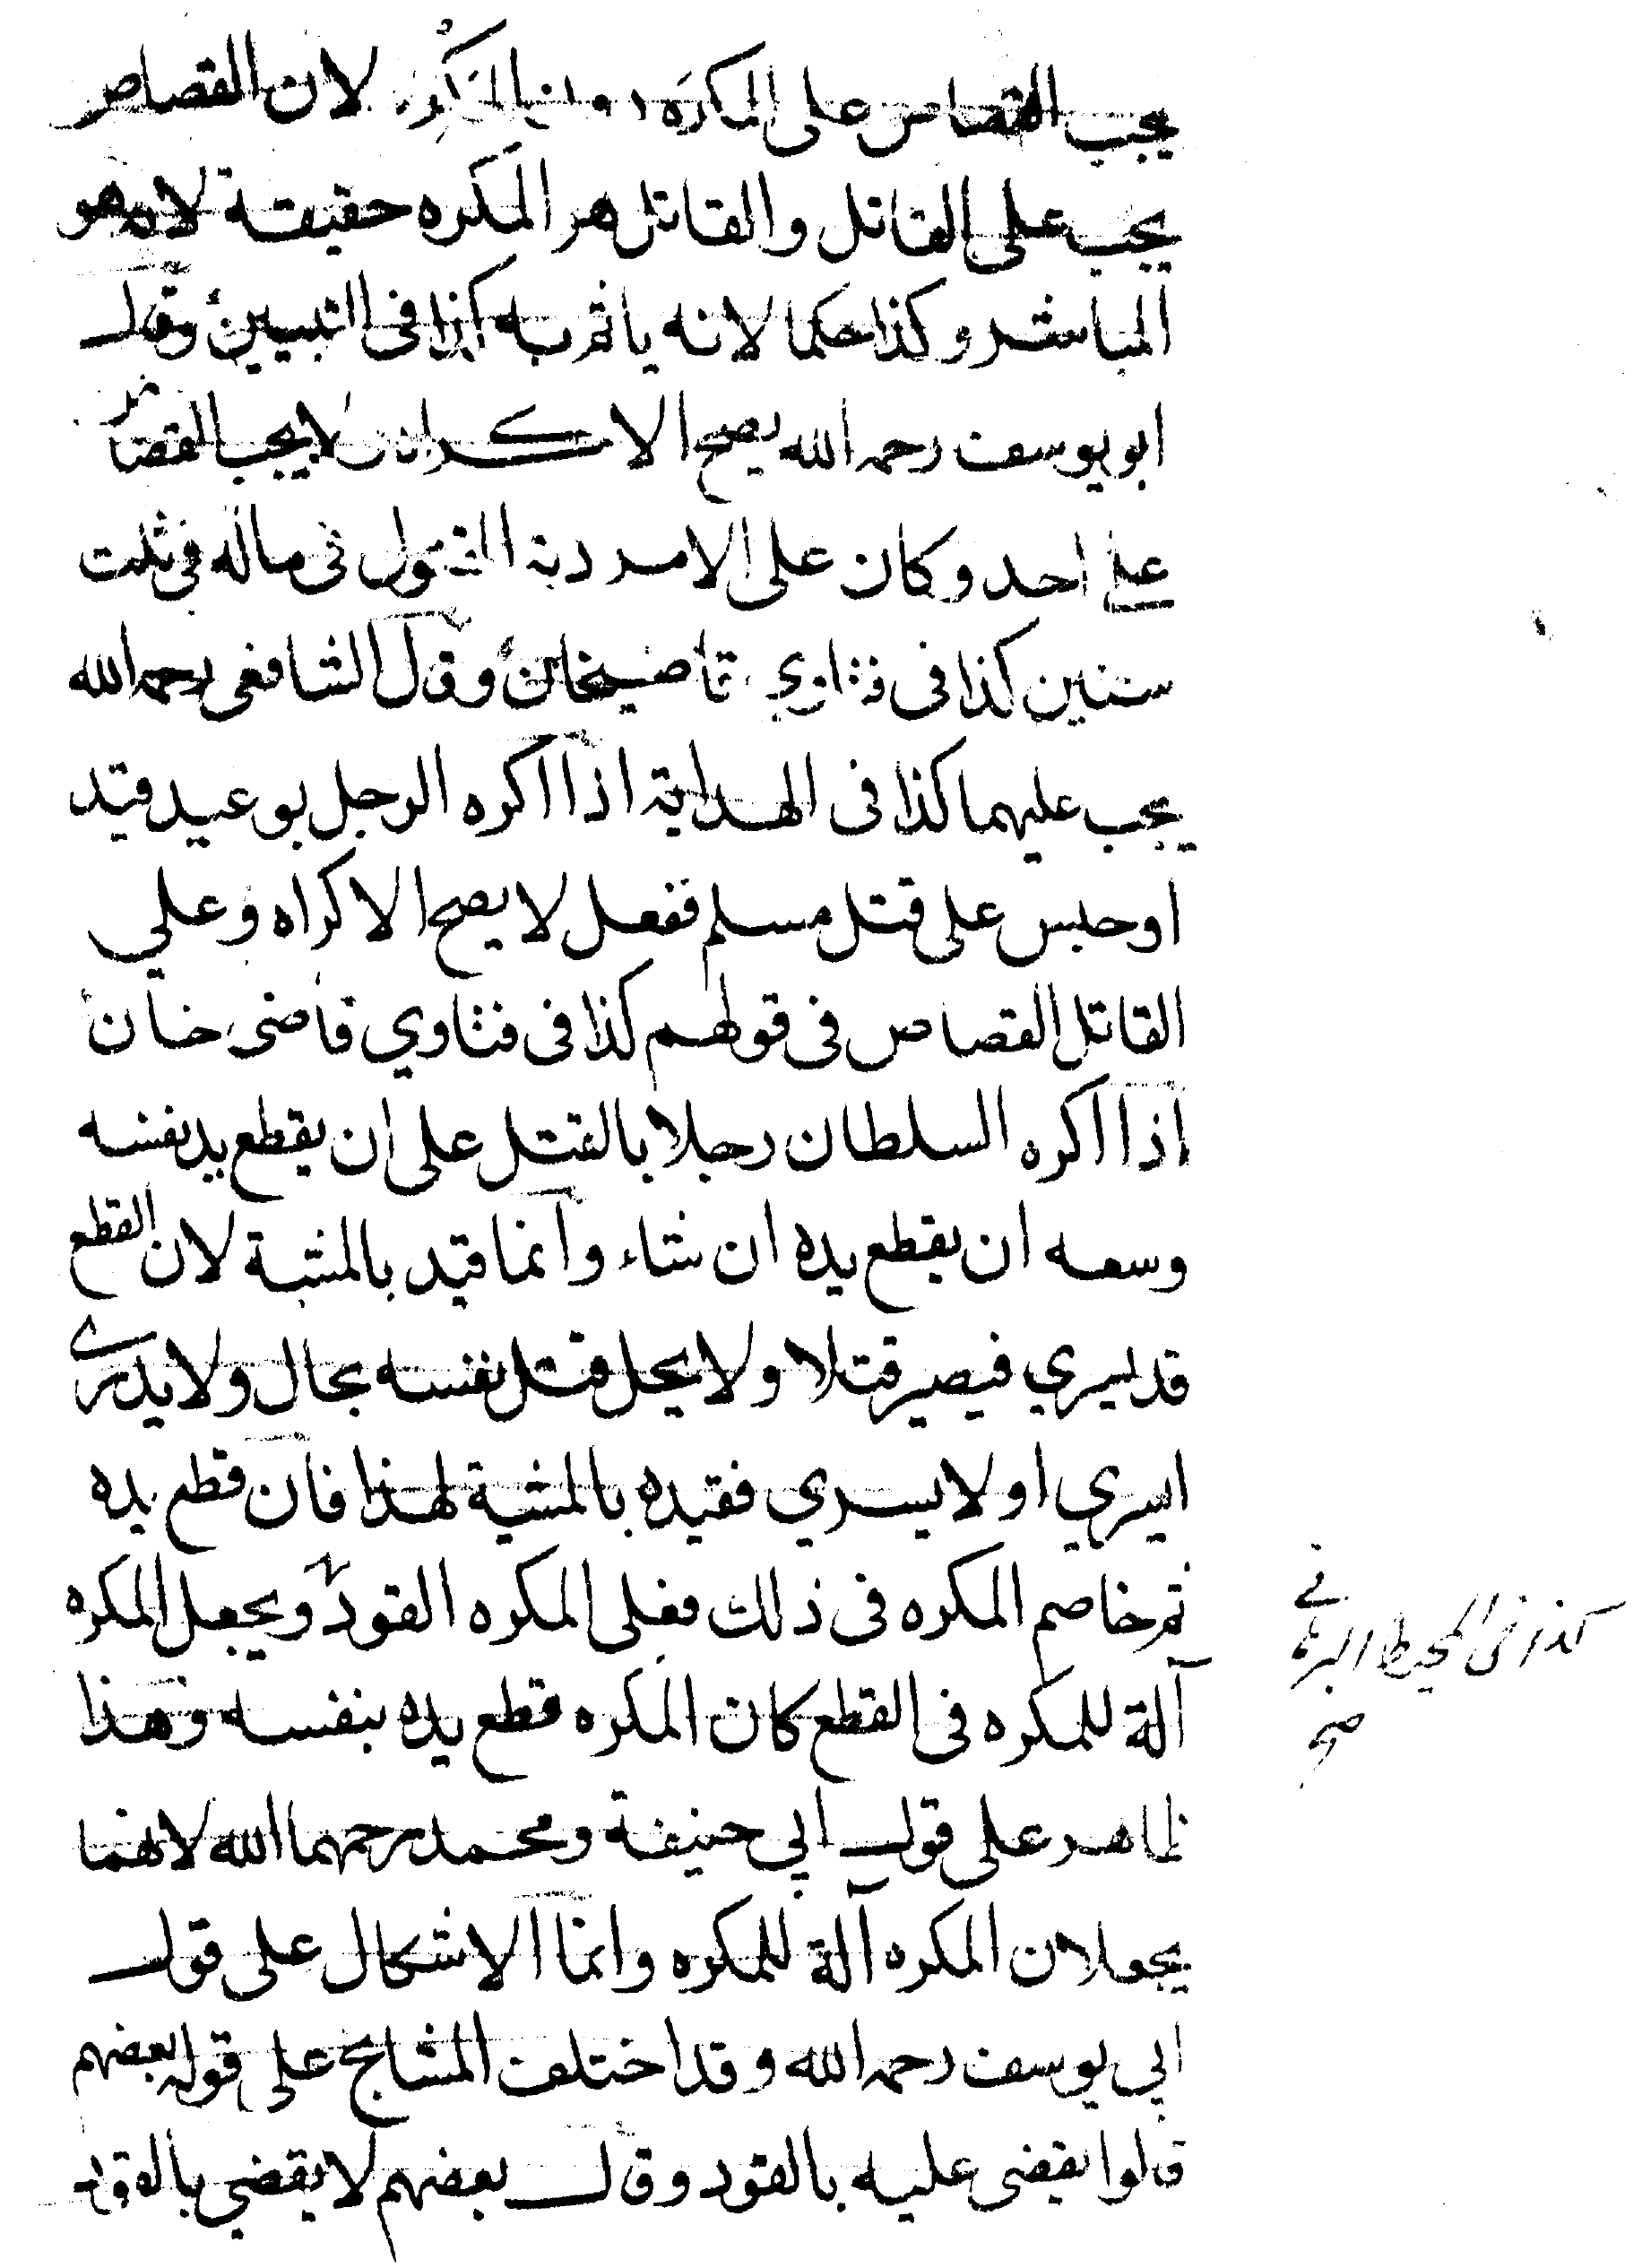 يجب القصاص على المكرَه دون المكرِه لان القصاص
يجب على القاتل والقاتل هو المكره حقيقة لانه هو
المباشر وكذا حكما لانه ياثم به كذا في التبيين وقال
ابو يوسف رحمه الله يصح الاكراه ولا يجب القصاص
على احد وكان على الامر دية المقتول في ماله في ثلث
سنين كذا في فتاوي قاضيخان وقال الشافعى رحمه الله
يجب عليهما كذا فى الهداية اذا اكره الرجل بوعيد قيد
او حبس على قتل مسلم ففعل لا يصح الاكراه وعلي
القاتل القصاص فى قولهم كذا فى فتاوي قاضى خان
اذا اكره السلطان رجلا بالقتل على ان يقطع يد نفسه
وسعه ان يقطع يده ان شاء وانما قيد بالمشية لان القطع
قد يسري فيصير قتلا ولا يحل قتل نفسه بحال ولا يدرى
ايسري او لا يسري فقيده بالمشية لهذا فان قطع يده
ثم خاصم المكره فى ذلك فعلى المكره القود ويجعل المكره
آلة للمكره فى القطع كان المكره قطع يده بنفسه وهذا
ظاهر على قول ابي حنيفة ومحمد رحمهما الله لانهما
يجعلان المكره آلة للمكره وانما الاشكال على قول
ابي يوسف رحمه الله وقد اختلف المشايخ على قوله بعضهم
قالوا يقضى عليه بالقود وقال بعضهم لا يقضي بالقود
كذا فى المحيط البرهاني
صح